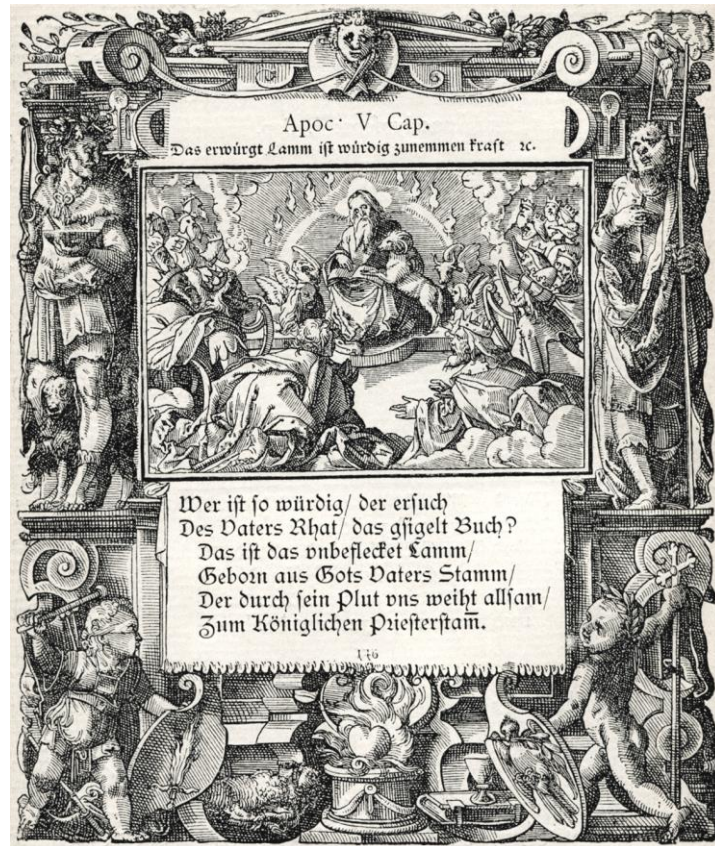 Apoc· V Cap.
Das erwürgt Lamm ist würdig zunemmen kraft ꝛc.
Wer ist so würdig/ der ersuch
Des Vaters Rhat/ das gsigelt Buch?
Das ist das vnbeflecket Lamm/
Geborn aus Gots Vaters Stamm/
Der durch sein Plut vns weiht allsam/
Zum Königlichen Priesterstam̅.
176